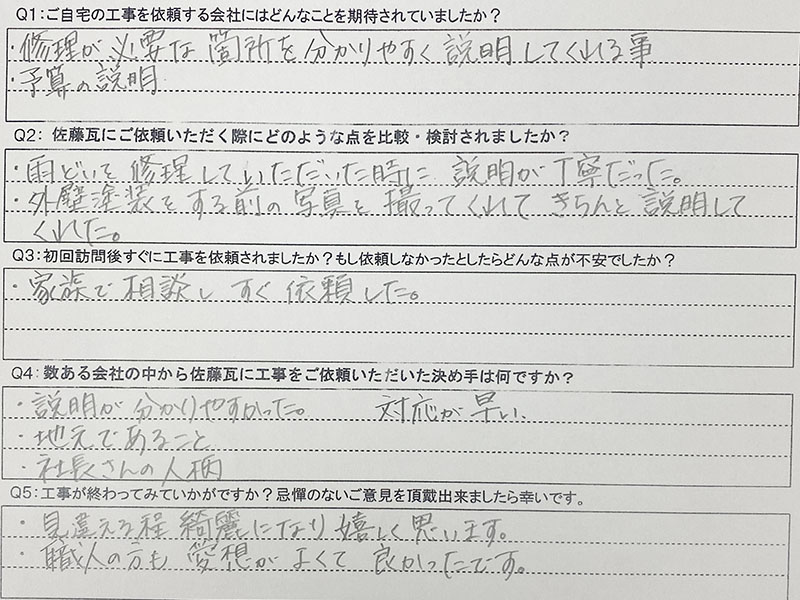 Q1:ご自宅の工事を依頼する会社にはどんなことを期待されていましたか?
・修理が必要な箇所を分かりやすく説明してくれる事
・予算の説明
Q2: 佐藤瓦にご依頼いただく際にどのような点を比較・検討されましたか?
・雨どいを修理していただいた時に 説明が丁寧だった。
・外壁塗装をする前の写真を撮ってくれて きちんと説明して
くれた。
Q3:初回訪問後すぐに工事を依頼されましたか?もし依頼しなかったとしたらどんな点が不安でしたか?
・家族で相談し すぐ依頼した。
Q4:数ある会社の中から佐藤瓦に工事をご依頼いただいた決め手は何ですか?
・説明が分かりやすかった。 対応が早い、
・地元であること
・社長さんの人柄
Q5:工事が終わってみていかがですか?忌憚のないご意見を頂戴出来ましたら幸いです。
・見違える程綺麗になり嬉しく思います。
・職人の方も愛想がよくて良かったです。